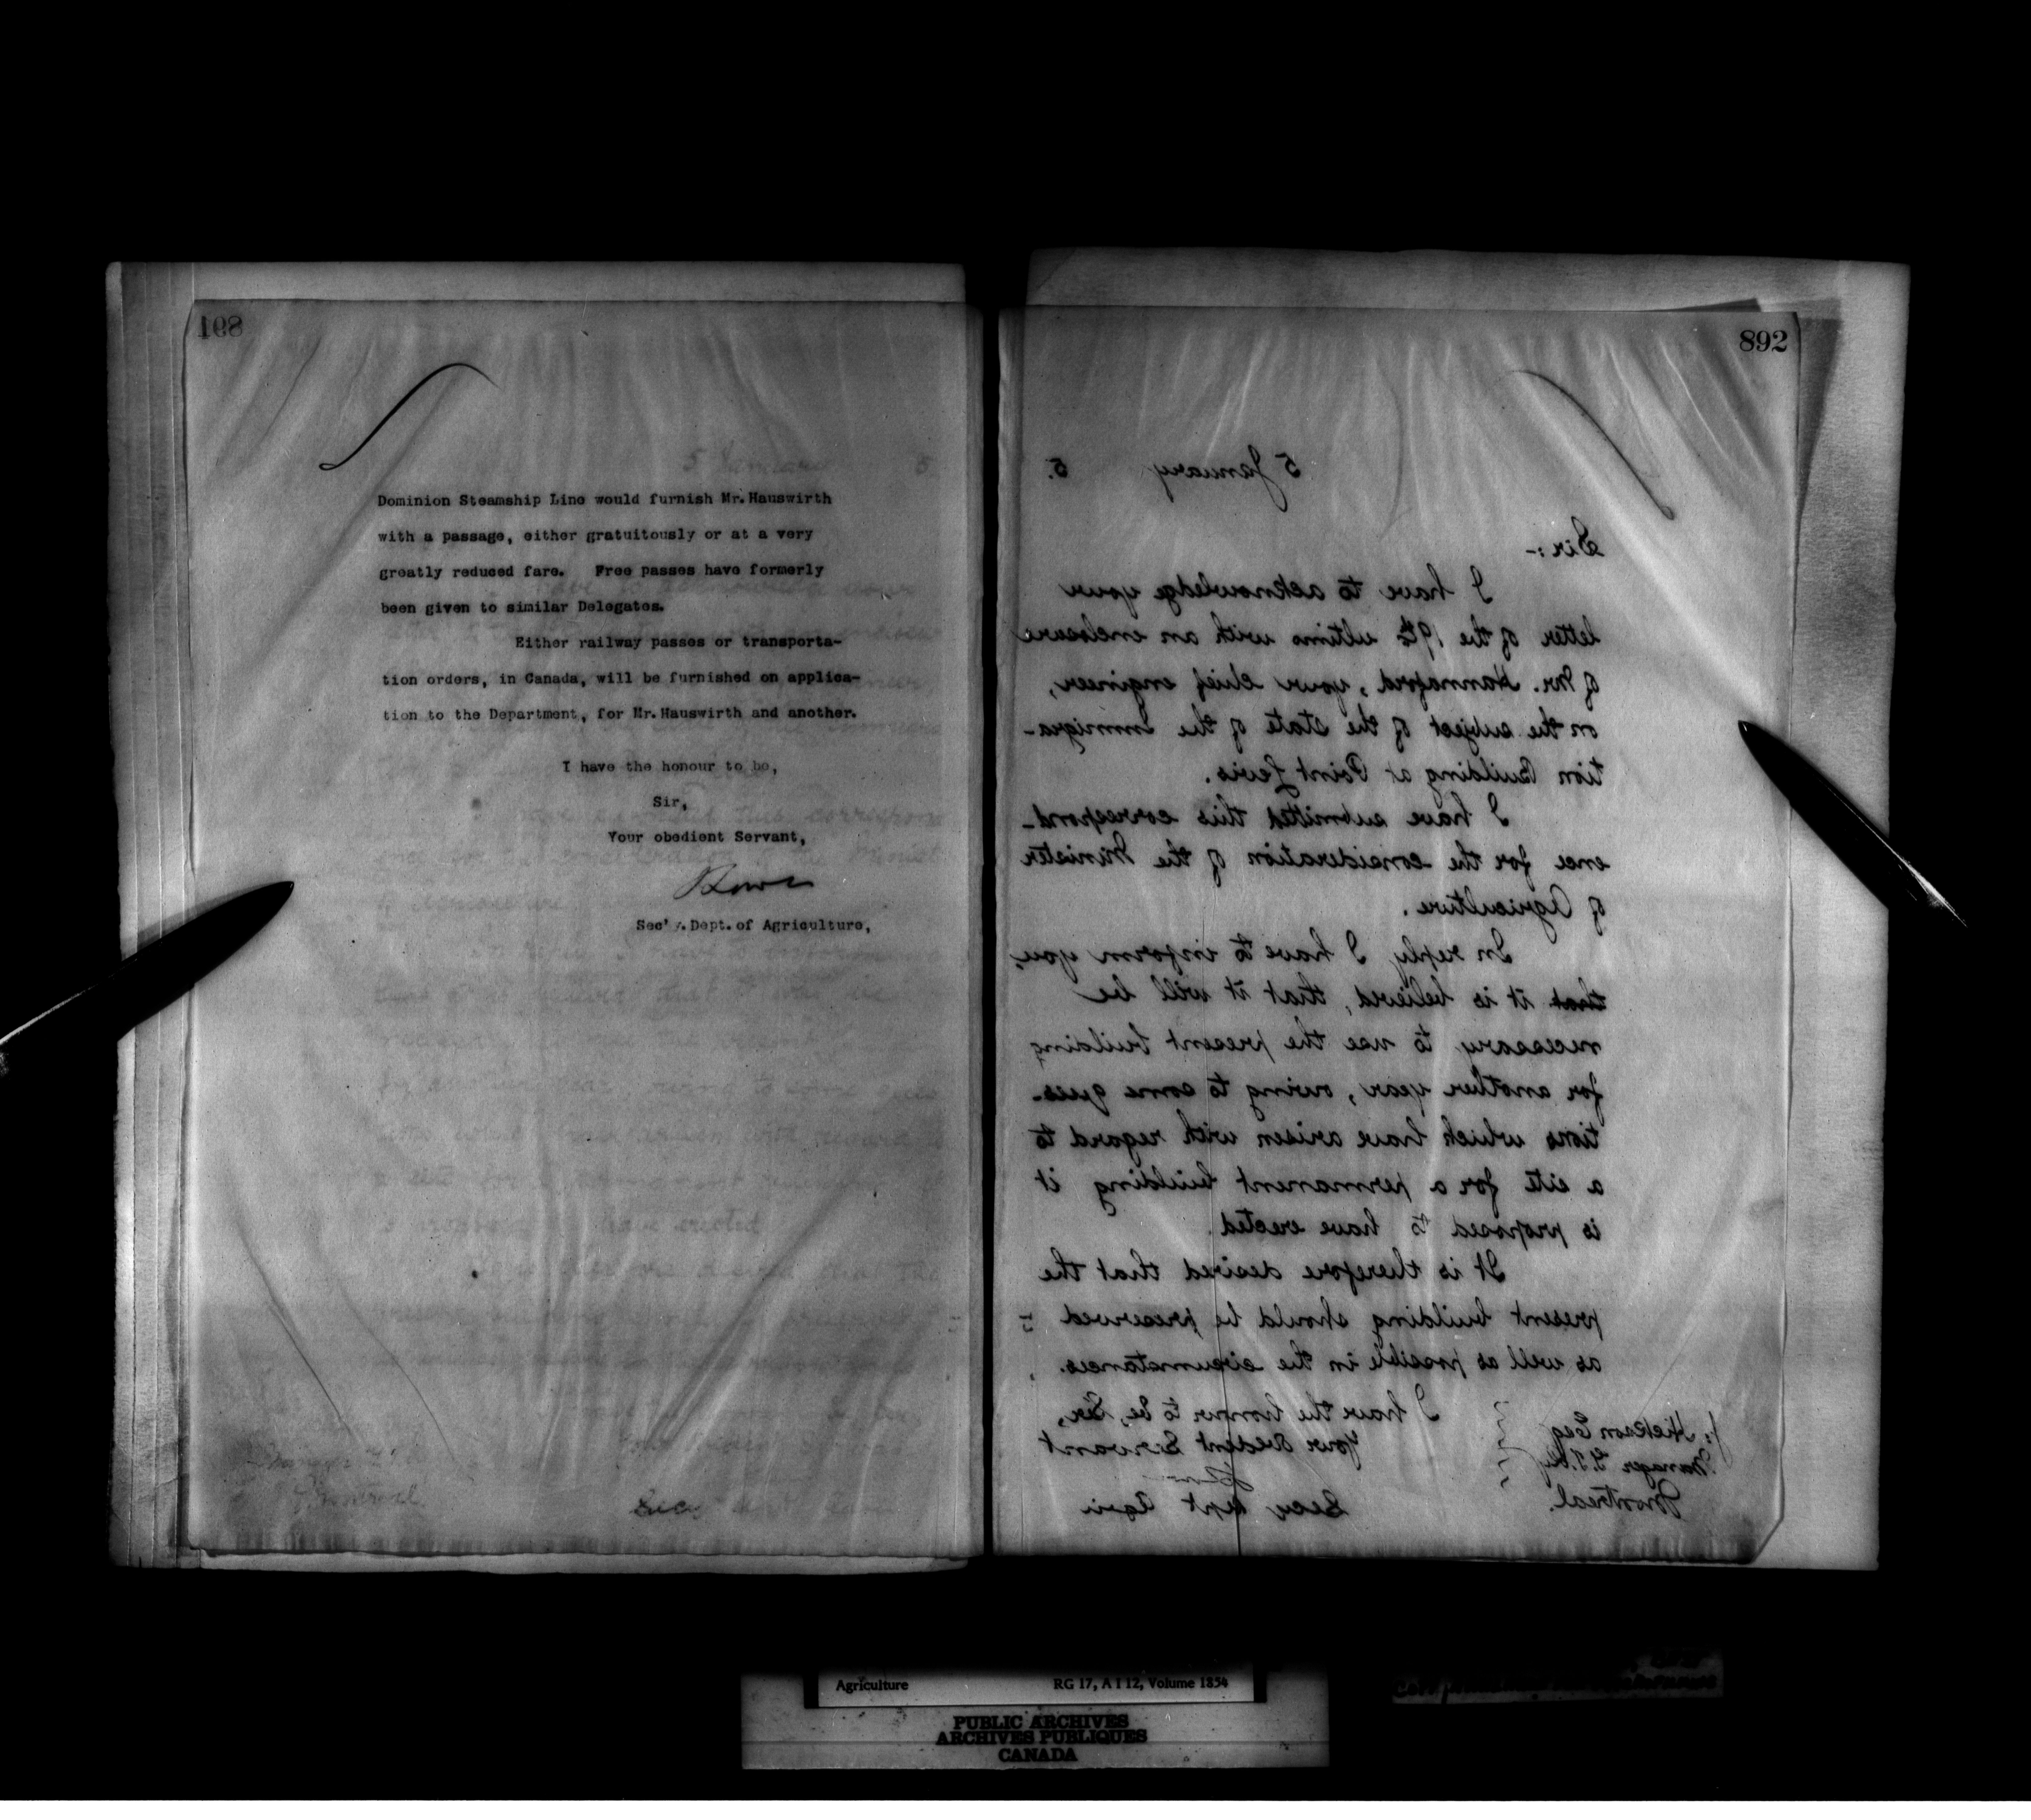 168
Dominion Steamship Line would furnish Mr. Hauswirth
with a passage, either gratuitously or at a very
greatly reduced fare. Free passes have formerly
been given to similar Delegates.
Either railway passes or transporta-
tion orders, in Canada, will be furnished on applica-
tion to the Department, for Mr. Hauswirth and another.
I have the honour to be,
Sir,
Your obedient Servant,
Sec'y. Dept. of Agriculture,
892
5 January 5.
Sir:-
I have to acknowledge your
letter of the 19th ultimo with an enclosure
of Mr. Hannaford, your chief engineer,
on the subject of the state of the Immigra-
tion Building at Point Levis.
I have submitted this correspond-
ence for the consideration of the Minister
of Agriculture.
In reply I have to inform you,
that it is believed, that it will be
necessary to use the present building
for another year, owing to some ques-
tions which have arisen with regard to
a site for a permanent building it
is proposed to have erected.
It is therefore desired that the
present building should be preserved
as well as possible in the circumstances.
I have the honor to be, Sir,
Your obedient Servant
Secy Dept Agri
J. Hickson Esq
Manager G.T.Ry
Montreal.
Agriculture RG 17, A I 12, Volume 1854
PUBLIC ARCHIVES
ARCHIVES PUBLIQUES
CANADA